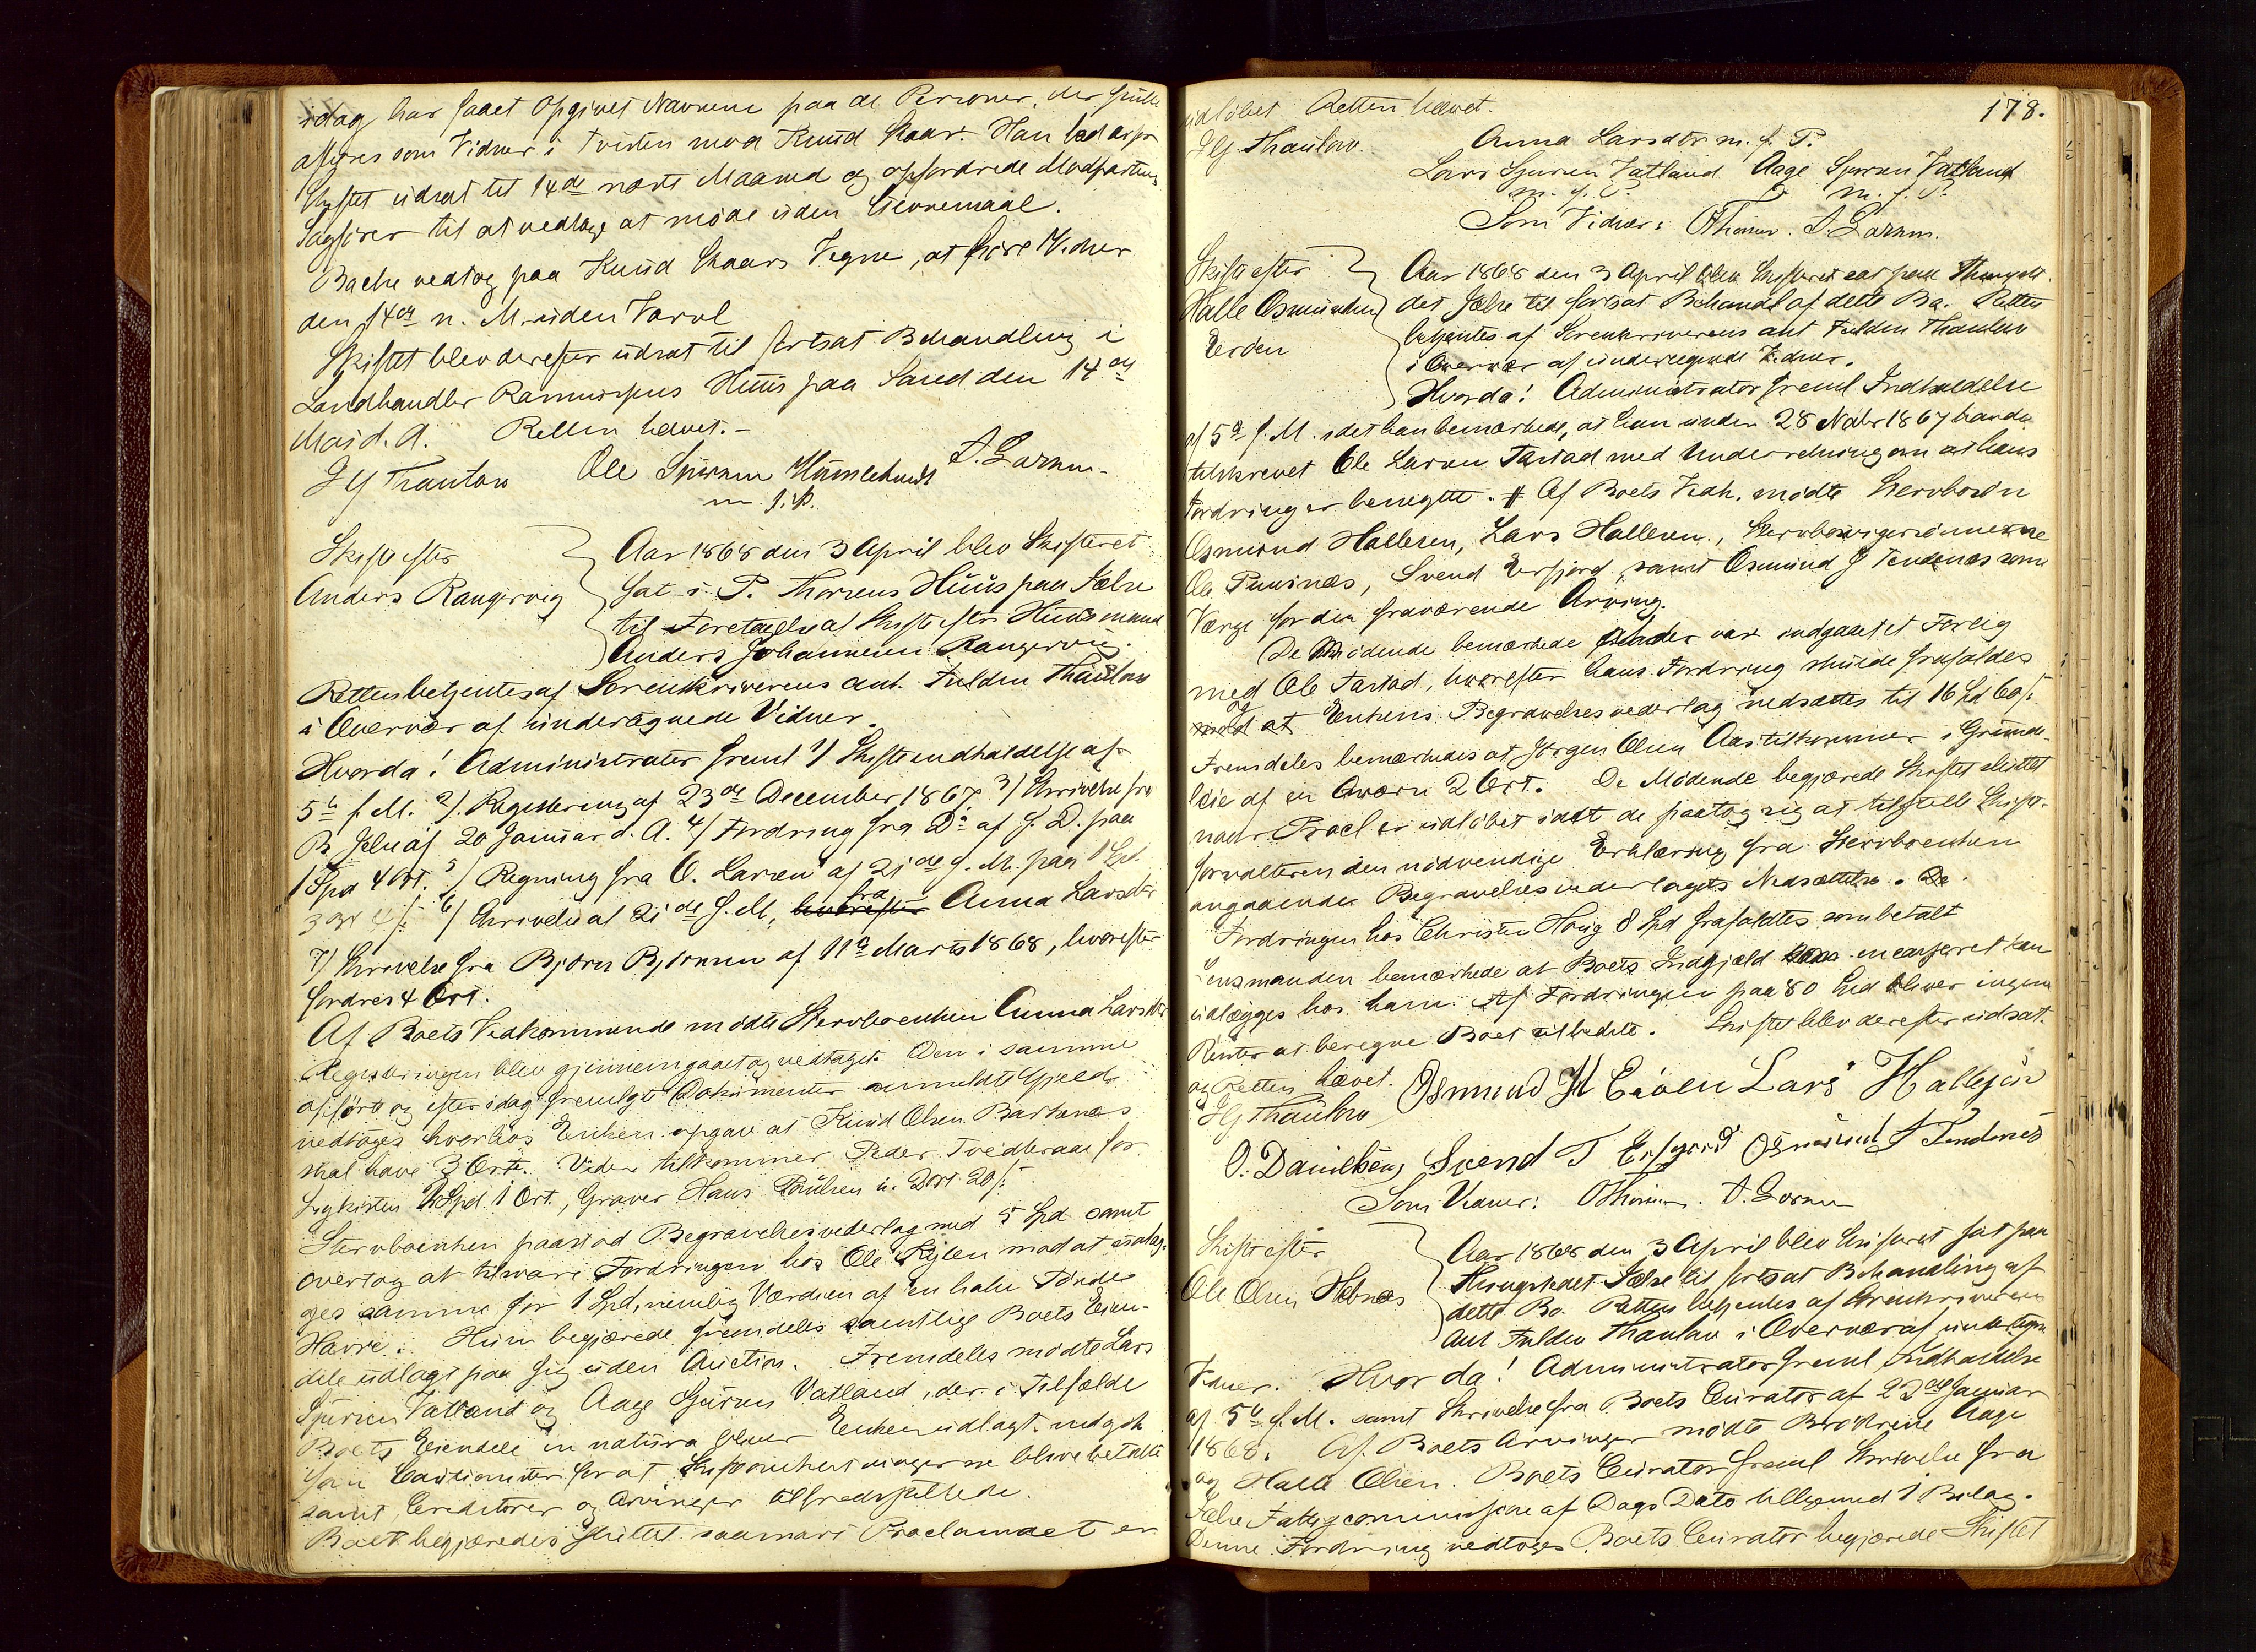 idag har faaet opgivet Navnene paa de Personer, der skulle
afhøres som Vidner i Tvisten mod Knud Skaar. Han bad derfor
Skiftet udsat til 14de næste Maaned og opfordrede Modpartens
Sagfører til at vedtage at møde uden Stevnemaal.
Bache vedtog paa Knud Skaars Vegne, at føre Vidner
den 14de n. M. uden Varsel
Skiftet blev derefter udsat til fortsat Behandling i
Landhandler Rasmussens Huus paa Sand den 14de
Mai d. A. Retten hævet.-
J G Thaulow Ole Sjursen Hamlehaudt A. Larsen.
m. f. P.
Skifte efter
Anders Rangervig
Aar 1868 den 3 April blev Skifteret
sat i P. Thorsens Huus paa Jælse
til Foretagelse af Skifte efter Huusmand
Anders Johannesen Rangervig.
Retten betjentes af Sorenskriverens aut. Fuldm Thaulow
i Overvær af undertegnede Vidner.
Hvorda! Administrator freml 1/ Skifteindkaldelse af
5te f. M. 2/ Registrering af 23de December 1867. 3/ Skrivelse fra
B Jelsa af 20 Januar d. A. 4/ Fordring fra Do af s. D. paa
1 Spd 4 Ort. 5/ Regning fra O. Larsen af 21de f. M. paa 1 Spd
3 Ort 4 s. 6/ Skrivelse af 21de f. M., hvorefter fra Anna Larsdtr
7/ Skrivelse fra Bjørn Bjørnsen af 11te Marts 1868, hvorefter
fordres 4 Ort.
Af Boets Vedkommende mødte Stervboenken Anna Larsdtr
Registringen blev gjennemgaaet og vedtaget. Den i samme
opførte og efter idag fremlagte Dokumenter anmeldte Gjeld
vedtoges hvorhos Enken opgav at Knud Olsen Barkenæs
skal have 3 Ort. Videre tilkommer Peder Tvedteraas for
Ligkisten 1 Spd 1 Ort., Graver Hans Poulsen 2 Ort 20 s.
Stervboenken paastod Begravelsesvederlag med 5 Spd samt
overtog at tilsvare Fordringen hos Ole Kylen mod at udlæg-
ges samme for 1 Spd, nemlig Værdien af en halv Tønde
Havre. Hun begjærede fremdeles samtlige Boets Eien-
dele udlagt paa sig uden Auction. Fremdeles mødte Lars
Sjursen Vatland og Aage Sjursen Vatland, der i Tilfælde
Boets Eiendele in natura bliver Enken udlagt indgik
som Cautionister for at Skifteomkostningerne blive betalte
samt Creditorer og Arvinger tilfredsstillede.
Boet begjæredes sluttet saasnart Proclamaet er
178.
udløbet. Retten hævet.
J G Thaulow. Anna Larsdtr m. f. P.
Lars Sjursen Vatland Aage Sjursen Vatland
m. f. P. m. f. P.
Som Vidner: O Thorsen. A. Larsen.
Skifte efter
Halle Osmundsen
Eeiden
Aar 1868 den 3 April blev Skifteret sat paa Thingste
det Jælse til fortsat Behandl af dette Bo. Retten
betjentes af Sorenskriverens aut Fuldm Thaulow
i Overvær af undertegnede Vidner.
Hvorda! Administrator freml Indkaldelse
af 5te f. M. idet han bemærkede, at han under 28 Novbr 1867 havde
tilskrevet Ole Larsen Tastad med Underretning om at hans
Fordring er benegtet. Af Boets Vedk. mødte Stervbosøn
Osmund Hallesen, Lars Hallesen, Stervbosvigersønnerne
Ole Punsnæs, Svend Eersfjord, samt Osmund J Tendenæs som
Værge for den fraværende Arving.
De Mødende bemærkede at der var indgaaet et Forlig
med Ole Tastad, hvorefter hans Fordring skulde frafaldes
mod at og Enkens Begravelsesvederlag nedsættes til 16 Spd 60 s.
Fremdeles bemærkedes at Jørgen Olsen Aas tilkommer i Grund-
leie af en Qværn 2 Ort. De Mødende begjærede Skiftet sluttet
naar Procl er udløbet idet de paatog sig at tilstille Skifte-
forvalteren den nødvendige Erklæring fra Stervboenken
angaaende Begravelsesvederlagets Nedsættelse.
Fordringen hos Christen Houg 8 Spd frafaldtes som betalt
Lensmanden bemærkede at Boets Indgjæld incasseret kan
udlægges hos ham. Af Fordringen paa 80 Spd bliver ingen
Renter at beregne Boet tilbedste. Skiftet blev derefter udsat
og Retten hævet.
J G Thaulow Osmund H Eiden Lars Hallesøn
O. Danielsen, Svend T Ersfjord Osmund J Tendenes
Som Vidner: O Thorsen. A. Larsen
Skifte efter
Ole Olsen Hebnæs
Aar 1868 den 3 April blev Skifteret sat paa
Thingstedet Jælse til fortsat Behandling af
dette Bo. Retten betjentes af Sorenskriverens
aut Fuldm Thaulow i Overvær af undertegn
Vidner. Hvorda! Administrator freml Indkaldelse
af 5te f. M. samt Skrivelse fra Boets Curator af 22de Januar
1868. Af Boets Arvinger mødte Brødrene Aage
og Halle Olsen. Boets Curator freml Skrivelse fra
Jælse Fattigcommission af Dags Dato tilligemed 1 Bilag.
Denne Fordring vedtoges. Boets Curator begjærede Skiftet